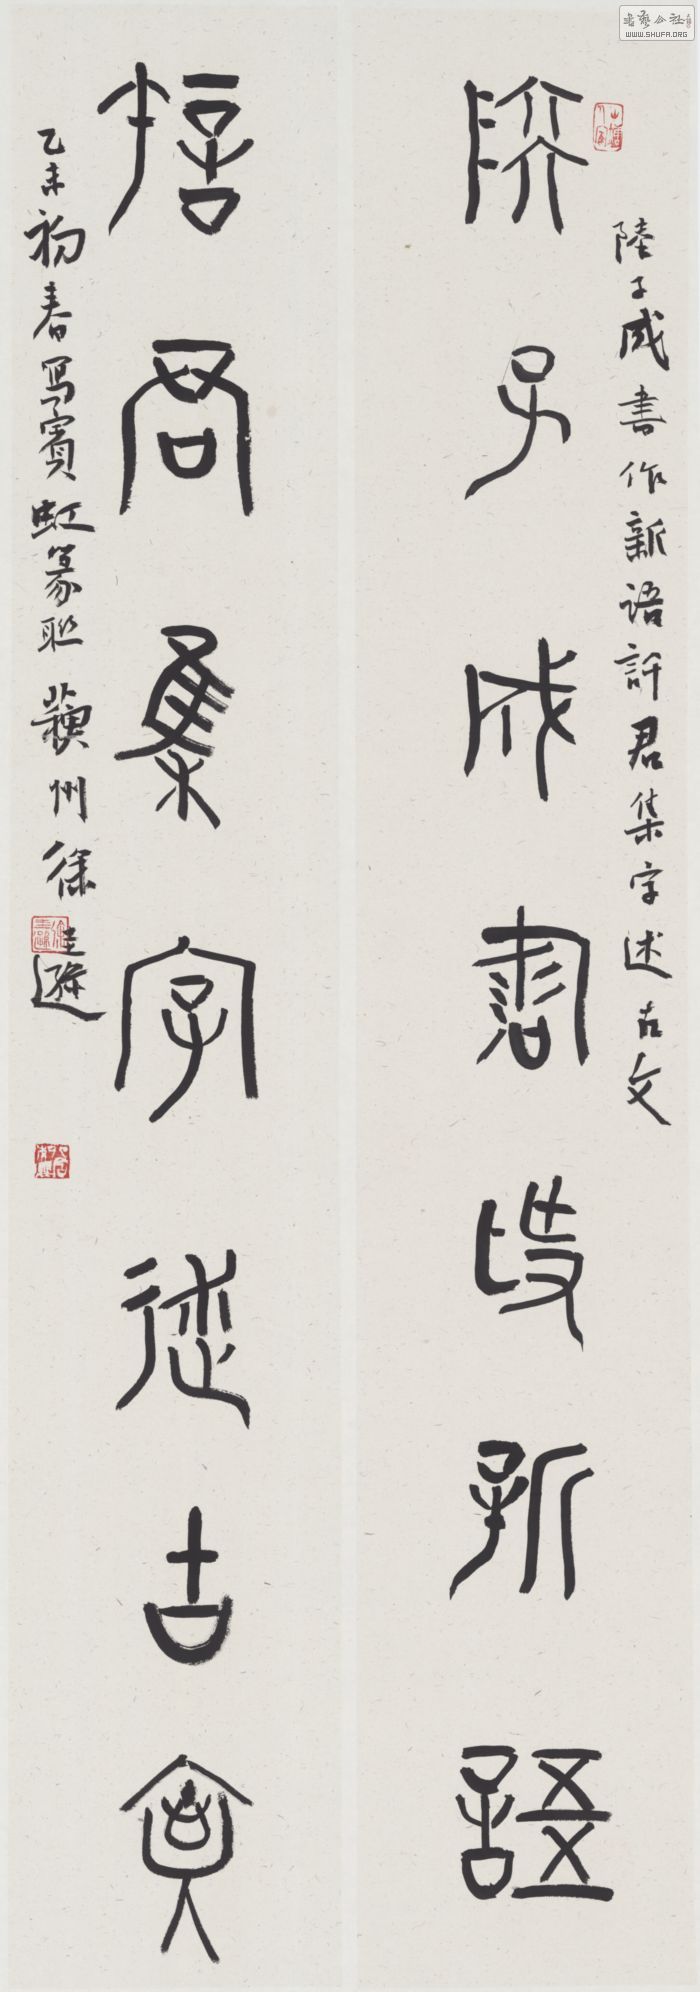 陸子成書作新語
許君集字述古文
陸子成書作新語許君集字述古文
乙未初春寫賓虹篆聯
蘄州徐
書藝公社
WWW.SHUFA.ORG